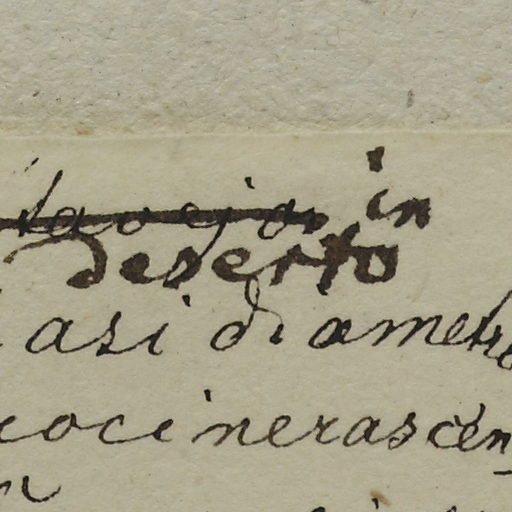 in
deserto
asi diametro
cocinerascen_